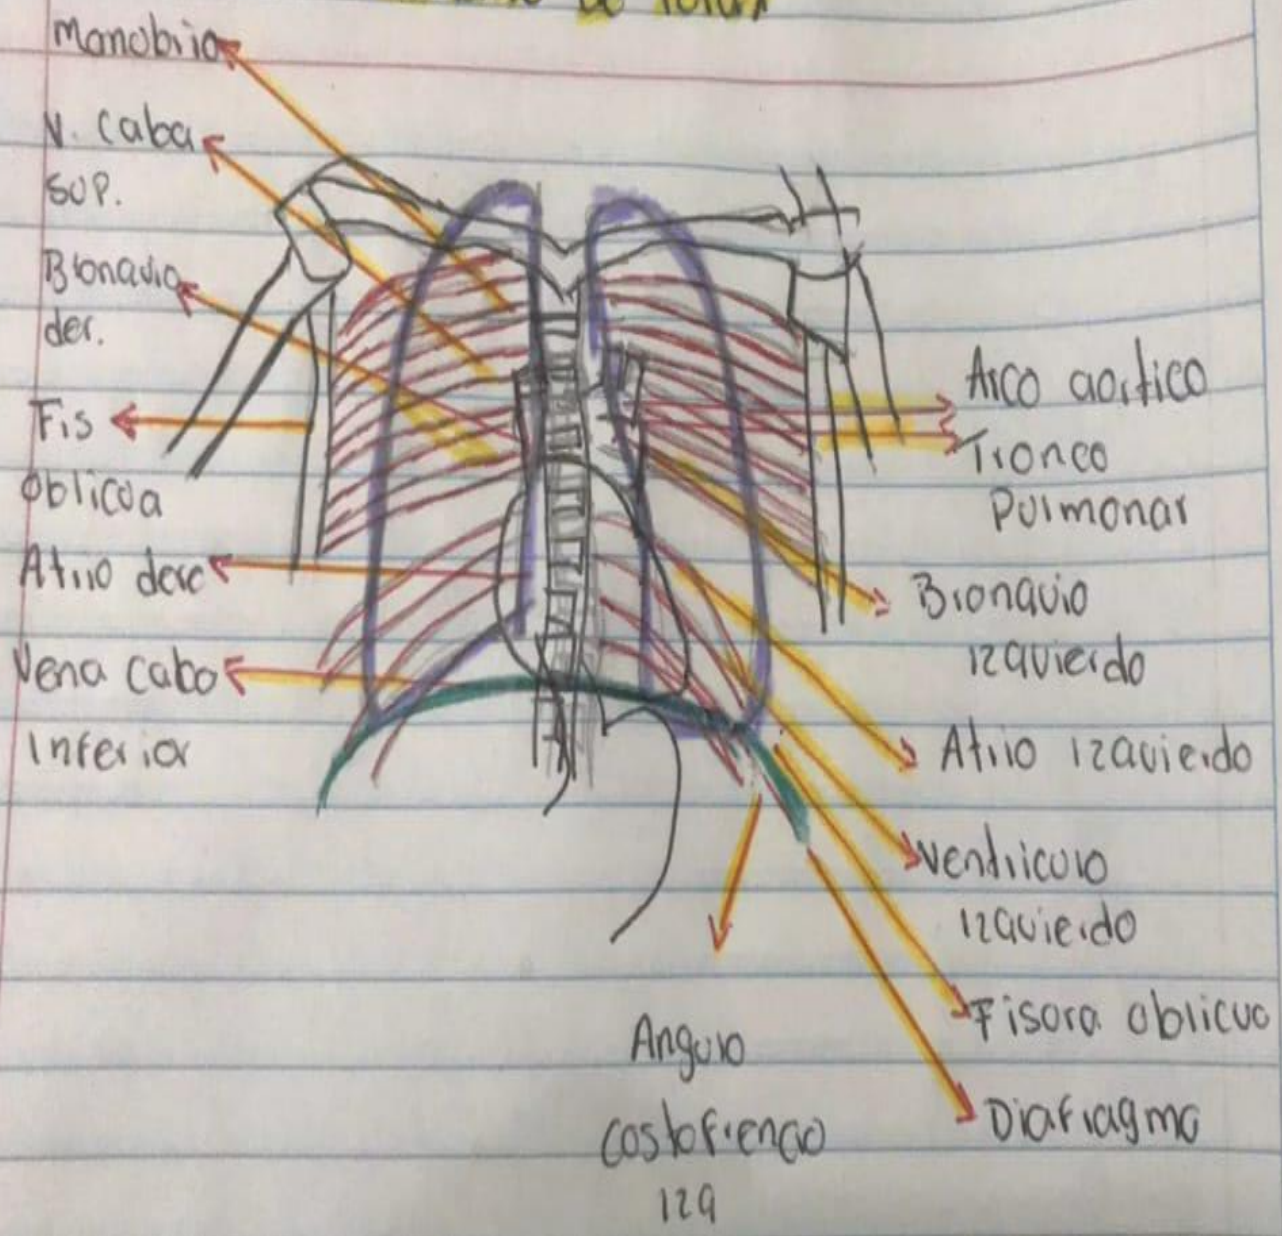 de Torax
Manobrio
V. Caba
SUP.
Bronquio
der.
Fis
Oblicua
Atrio dere
Vena Cabo
Inferior
Arco aortico
Tronco
Pulmonar
Bronquio
izquierdo
Atrio izquierdo
Ventriculo
izquierdo
Fisora oblicuo
Diafragma
Angulo
Costofrenco
izq